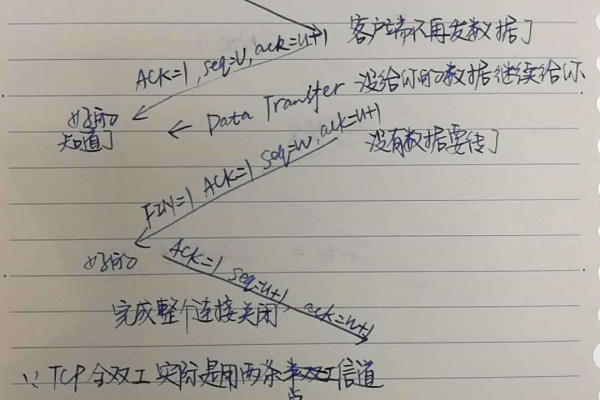 客户端不再发数据了
ACK=1, seq=v, ack=u+1
← Data Transfer 没给你的数据继续给你
好的
知道了
没有数据要传了
FIN=1 ACK=1 seq=w, ack=u+1
好的
ACK=1 seq=u+1 ack=w+1
完成整个连接关闭
∵ TCP全双工实际是用两条单双工信道